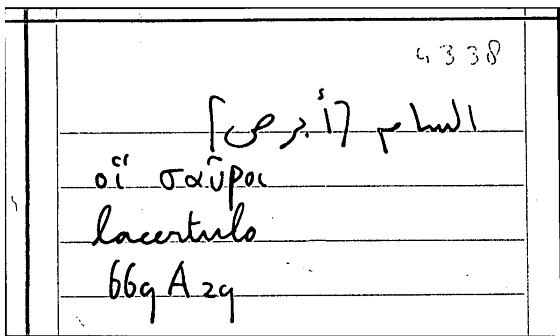 4338
السام [أبرص]
οἱ σαῦροι
lacertulo
669 A 29